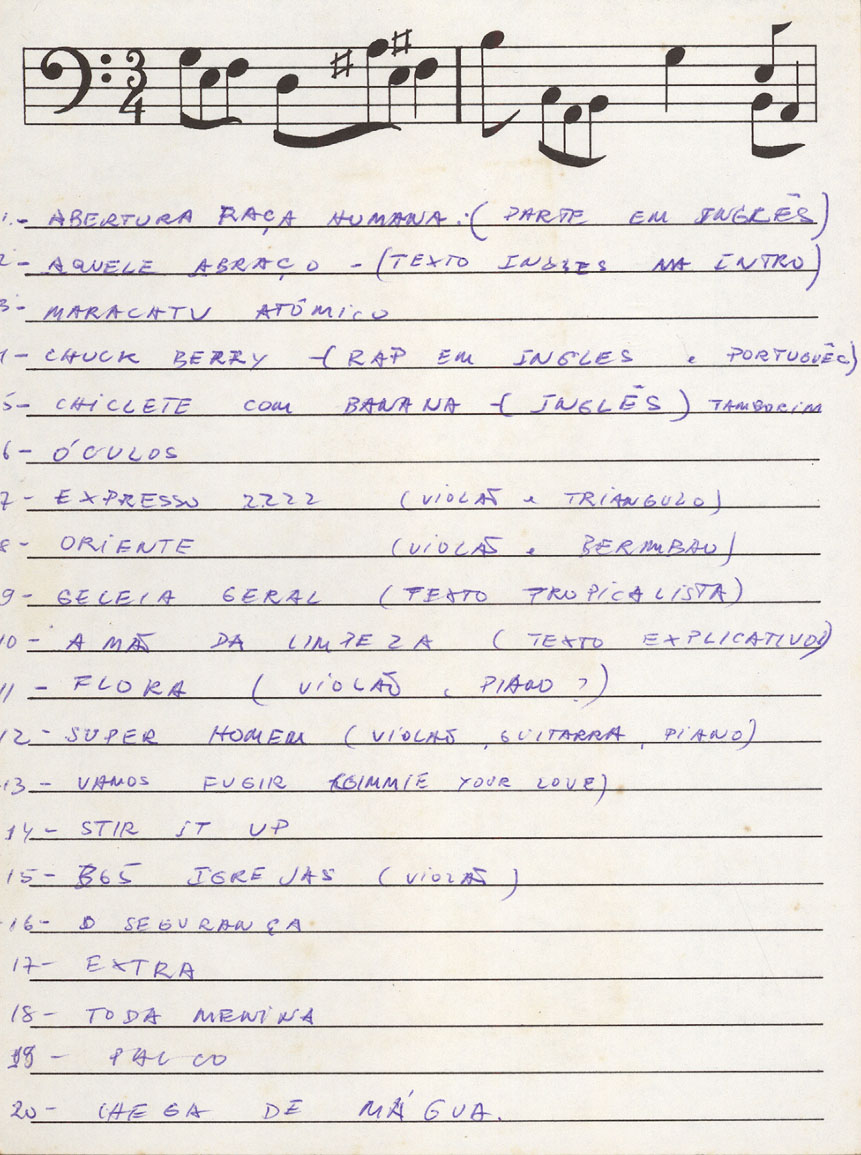 3
4
1.- ABERTURA RAÇA HUMANA.(PARTE EM INGLÊS)
2- AQUELE ABRAÇO - (TEXTO INGLES NA INTRO)
3- MARACATU ATÔMICO
4- CHUCK BERRY -(RAP EM INGLES e PORTUGUÊS)
5- CHICLETE COM BANANA -(INGLÊS) TAMBORIM
6- ÓCULOS
7- EXPRESSO 2222 (VIOLÃO e TRIANGULO)
8- ORIENTE (VIOLÃO e BERIMBAU)
9- GELEIA GERAL (TEXTO TROPICALISTA)
10- A MÃO DA LIMPEZA (TEXTO EXPLICATIVO)
11- FLORA (VIOLÃO, PIANO?)
12- SUPER HOMEM (VIOLÃO, GUITARRA, PIANO)
13- VAMOS FUGIR (GIMMIE YOUR LOVE)
14- STIR IT UP
15- 365 IGREJAS (VIOLÃO)
16- O SEGURANÇA
17- EXTRA
18- TODA MENINA
19- PALCO
20- CHEGA DE MÁGUA.